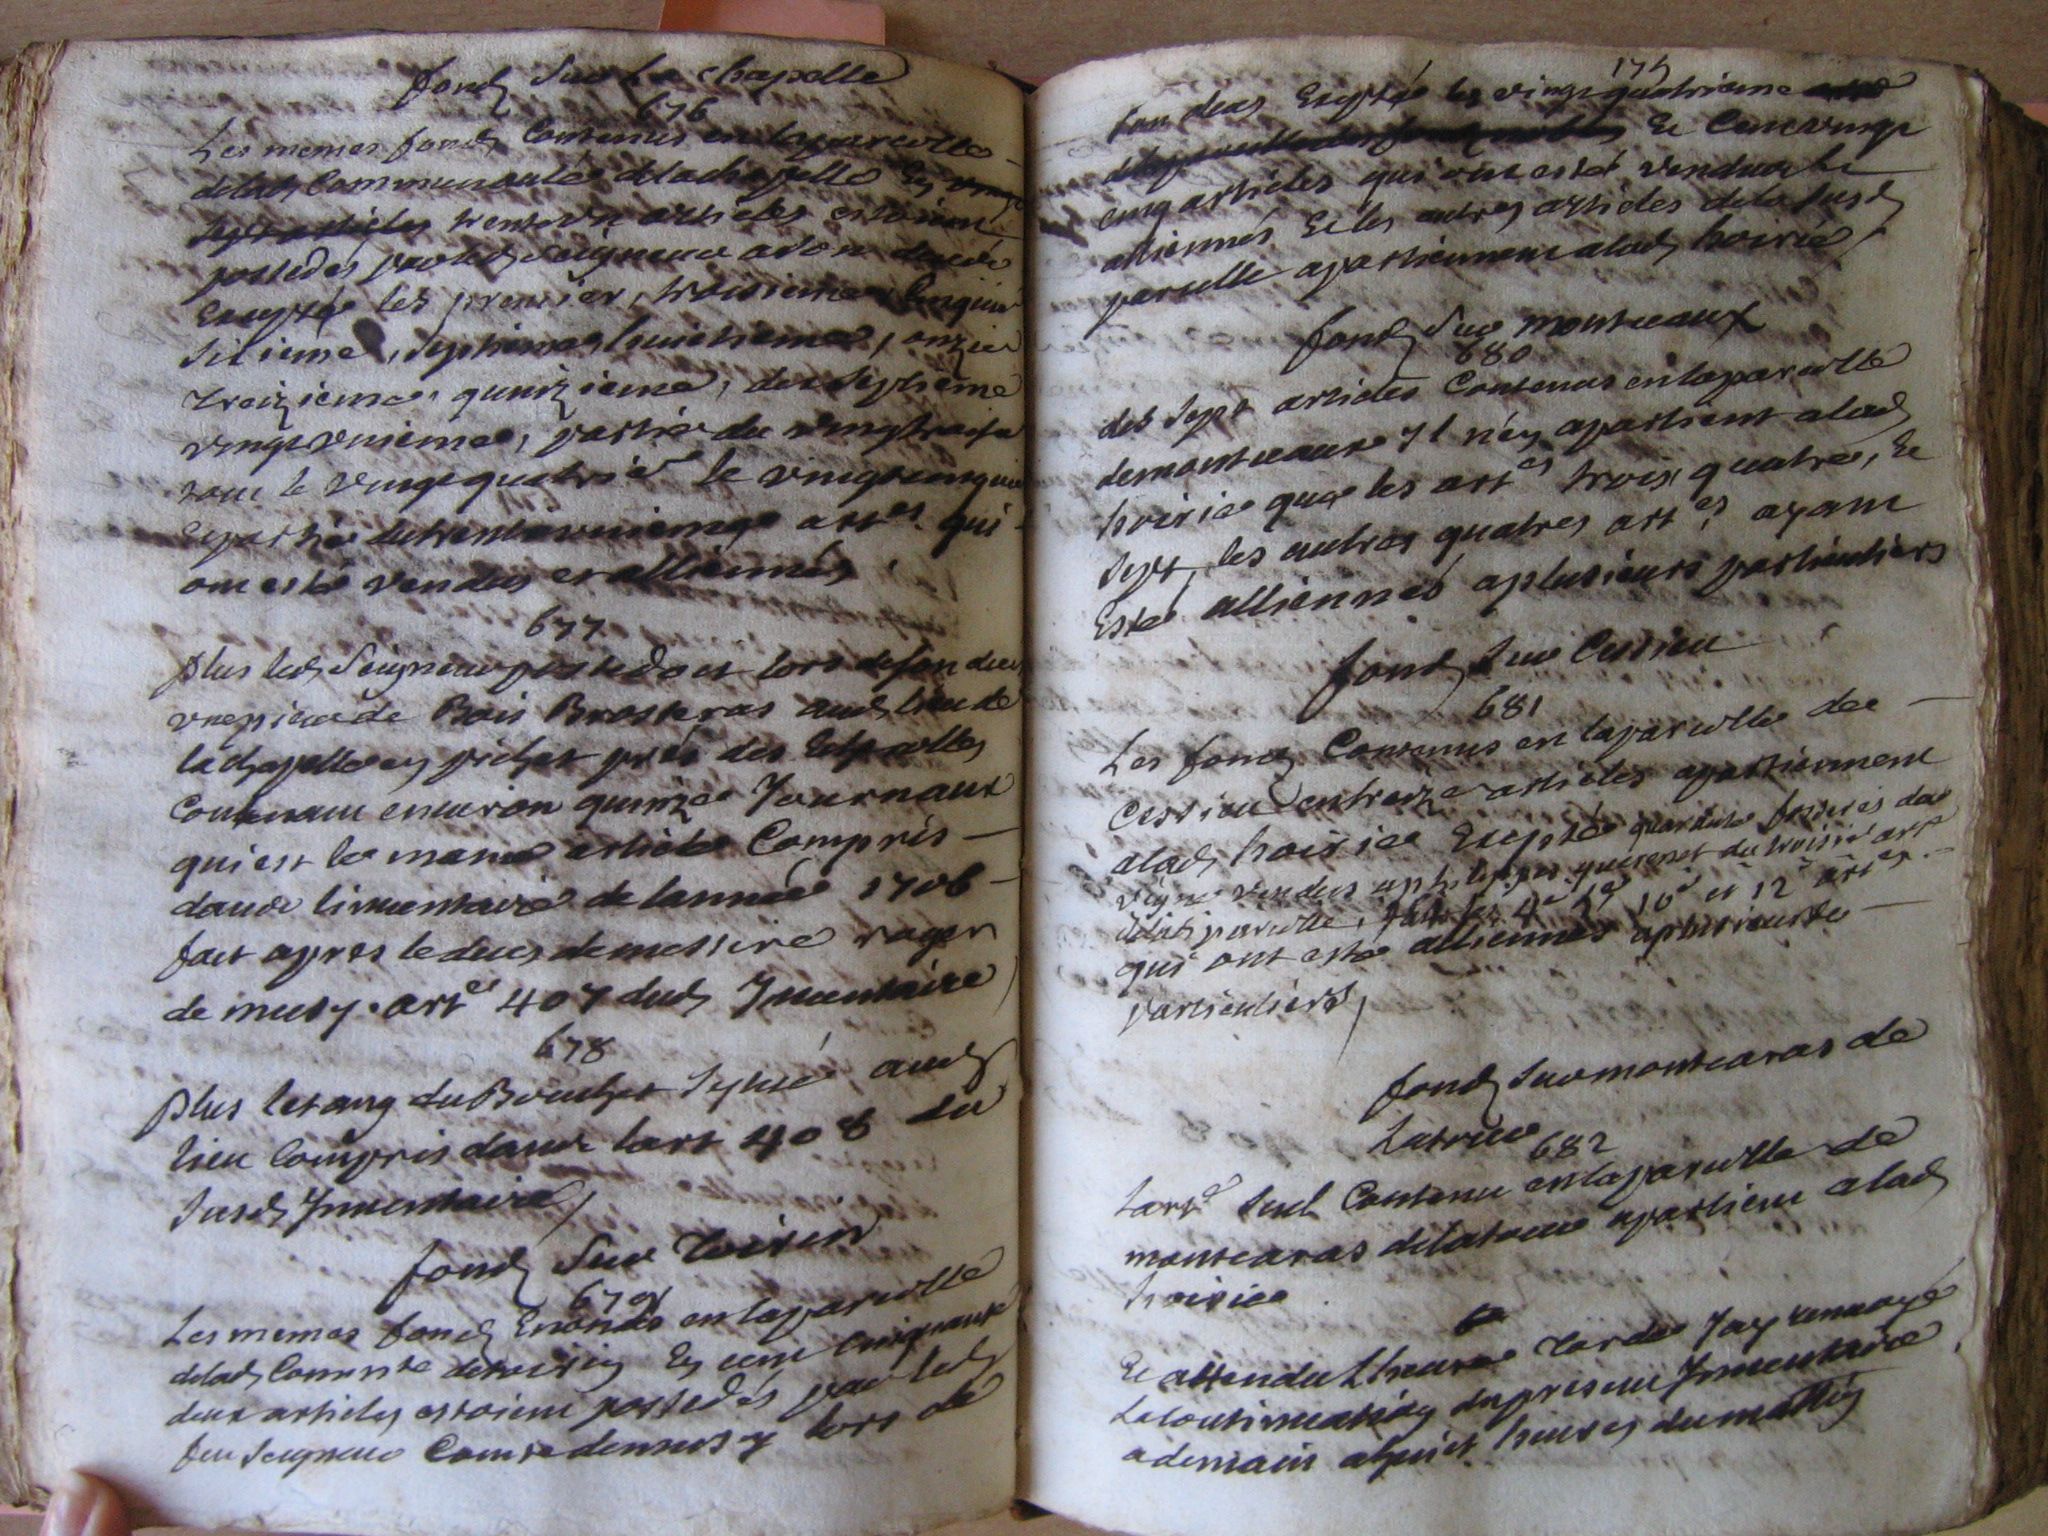 fonds Sur La chapelle
676
Les memes fonds Contenus en la parcelle
de lad Communauté de la chapelle En vingt
sept articles trente un articles estoient
possedés par led Seigneur a son deces
Excepté les premier, troisieme, Cinquie
Sizieme, septieme, huictieme, onzie
treizieme, quinzieme, dix septieme
vingt unieme, partie du vingt troise
tout le vingt quatrie le vingt cinquie
et partie du trente unieme artes qui
ont esté vendus et alliennés
677
plus led Seigneur possedoit lors de son deces
une piece de Bois Brosseras aud lieu de
la chapelle en pichat prés des
Contenant environ quinze Journaux
qui est le meme article Compris
dans linventaire de lannée 1706
fait apres le deces de messire roger
de musy. arte 407 dud Inventaire
678
plus letang du Bouchet Sytué aud
lieu Compris dans lart 408 du
Susd Inventaire
fonds Sur Voisin
679
Les memes fonds Enoncés en la parcelle
de lad Commte de Voisin En cent Cinquante
deux articles estoient possedés par led
feu Seigneur Comte de musy lors de
174
son deces Excepté les vingt quatrieme
Et Cent vingt
cinq articles qui ont esté vendus et
alliennés Et les autres articles de la Susd
parcelle apartiennent a lad hoirie
fonds Sur montceaux
680
des Sept articles Contenus en la parcelle
de montceaux Il n'en apartient a lad
hoirie que les artes trois quatre, Et
Sept, les autres quatres artes ayant
Esté alliennés a plusieurs particuliers
fonds Sur Cessieu
681
Les fonds Contenus en la parcelle de
Cessieu en treize articles apartiennent
a lad hoirie Excepté quarante fosseres de
vigne vendus a philippes du troisie arte
de lad parcelle, 4e 10e et 12e artes
qui ont este alliennés a plusieurs
particuliers
fonds Sur montcaras de
Latour
682
Larte Seul Contenu en la parcelle de
montcaras de latour apartient a lad
hoirie
Et attendu Lheure tarde Jay renvoyé
La Continuation du present Inventaire
a demain a huict heures du mattin